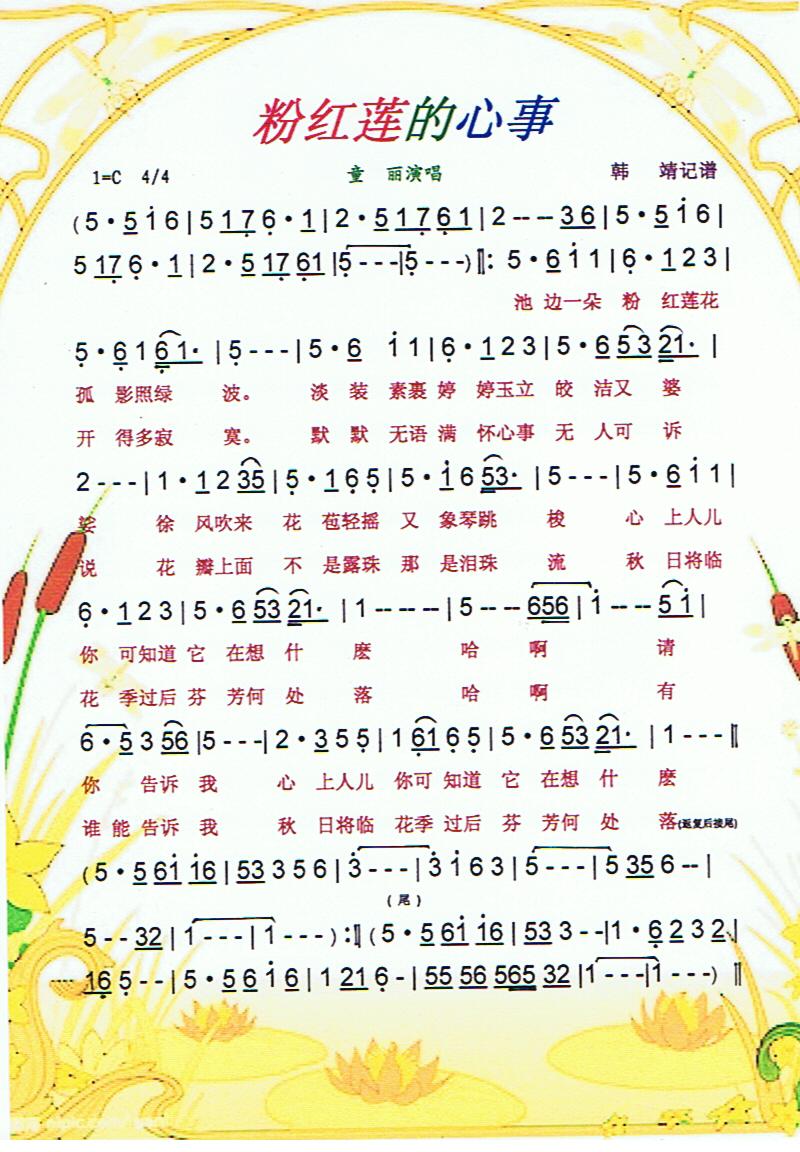 粉红莲的心事
1=C 4/4 童 丽演唱 韩 靖记谱
(5·5 i 6|5 1 7 6·1|2·5 1 7 6 1|2 -- -- 3 6|5·5 i 6|
5 17 6·1|2·5 17 61|5 - - -|5 - - -)‖: 5·6 i 1|6·1 2 3|
池 边一朵 粉 红莲花
5·6 1 6 1·|5 - - -|5·6 i 1|6·1 2 3|5·6 5 3 21·|
孤 影照绿 波。 淡 装 素裹 婷 婷玉立 皎 洁又 婆
开 得多寂 寞。 默 默 无语 满 怀心事 无 人可 诉
2 - - -|1·1 2 35|5·1 6 5|5·i 6 53·|5 - - -|5·6 i 1|
娑 徐 风吹来 花 苞轻摇 又 象琴跳 梭 心 上人儿
说 花 瓣上面 不 是露珠 那 是泪珠 流 秋 日将临
6·1 2 3|5·6 53 21·|1 -- -- --|5 -- -- 656|i -- -- 5 i|
你 可知道 它 在想 什 麽 哈 啊 请
花 季过后 芬 芳何 处 落 哈 啊 有
6·5 3 56|5 - - -|2·3 5 5|1 61 6 5|5·6 53 21·|1 - - -‖
你 告诉 我 心 上人儿 你可 知道 它 在想 什 麽
谁 能 告诉 我 秋 日将临 花季 过后 芬 芳何 处 落(返复后接尾)
(5·5 6i i6|53 3 5 6|3 - - -|3 i 6 3|5 - - -|5 35 6 --|
(尾)
5 - - 32|1 - - -|1 - - -):‖(5·5 6i i6|53 3 - -|1·6 2 3 2|
16 5 - -|5·5 6 i 6|1 21 6 -|55 56 565 32|1 - - -|1 - - -)‖